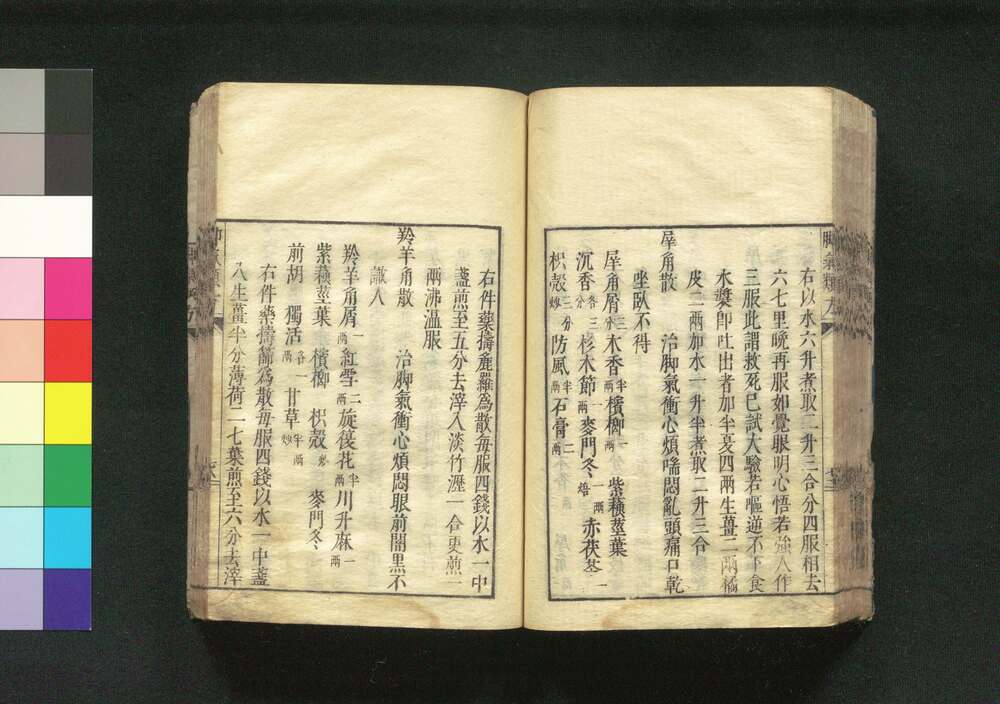 脚氣類方
右以水六升煮取二升三合分四服相去
六七里晚再服如覺眼明心悟若強人作
三服此謂救死已試大驗若嘔逆不下食
水漿即吐出者加半夏四兩生薑二兩橘
皮二兩加水一升半煮取二升三合
犀角散 治脚氣衝心煩喘悶亂頭痛口乾
坐臥不得
犀角屑三分木香半兩檳榔一兩紫蘇莖葉
沉香各三分杉木節一兩麥門冬一兩焙赤茯苓一
枳殼三分炒防風半兩石膏二兩
右件藥擣麁羅為散每服四錢以水一中
盞煎至五分去滓入淡竹瀝一合更煎一
兩沸溫服
羚羊角散 治脚氣衝心煩悶眼前闇黑不
識人
羚羊角屑一兩紅雪二兩旋復花半兩川升麻一兩
紫蘇莖葉 檳榔 枳殼炒 麥門冬
前胡 獨活各一兩 甘草半兩炒
右件藥擣篩為散每服四錢以水一中盞
入生薑半分薄荷二七葉煎至六分去滓
脚氣類方